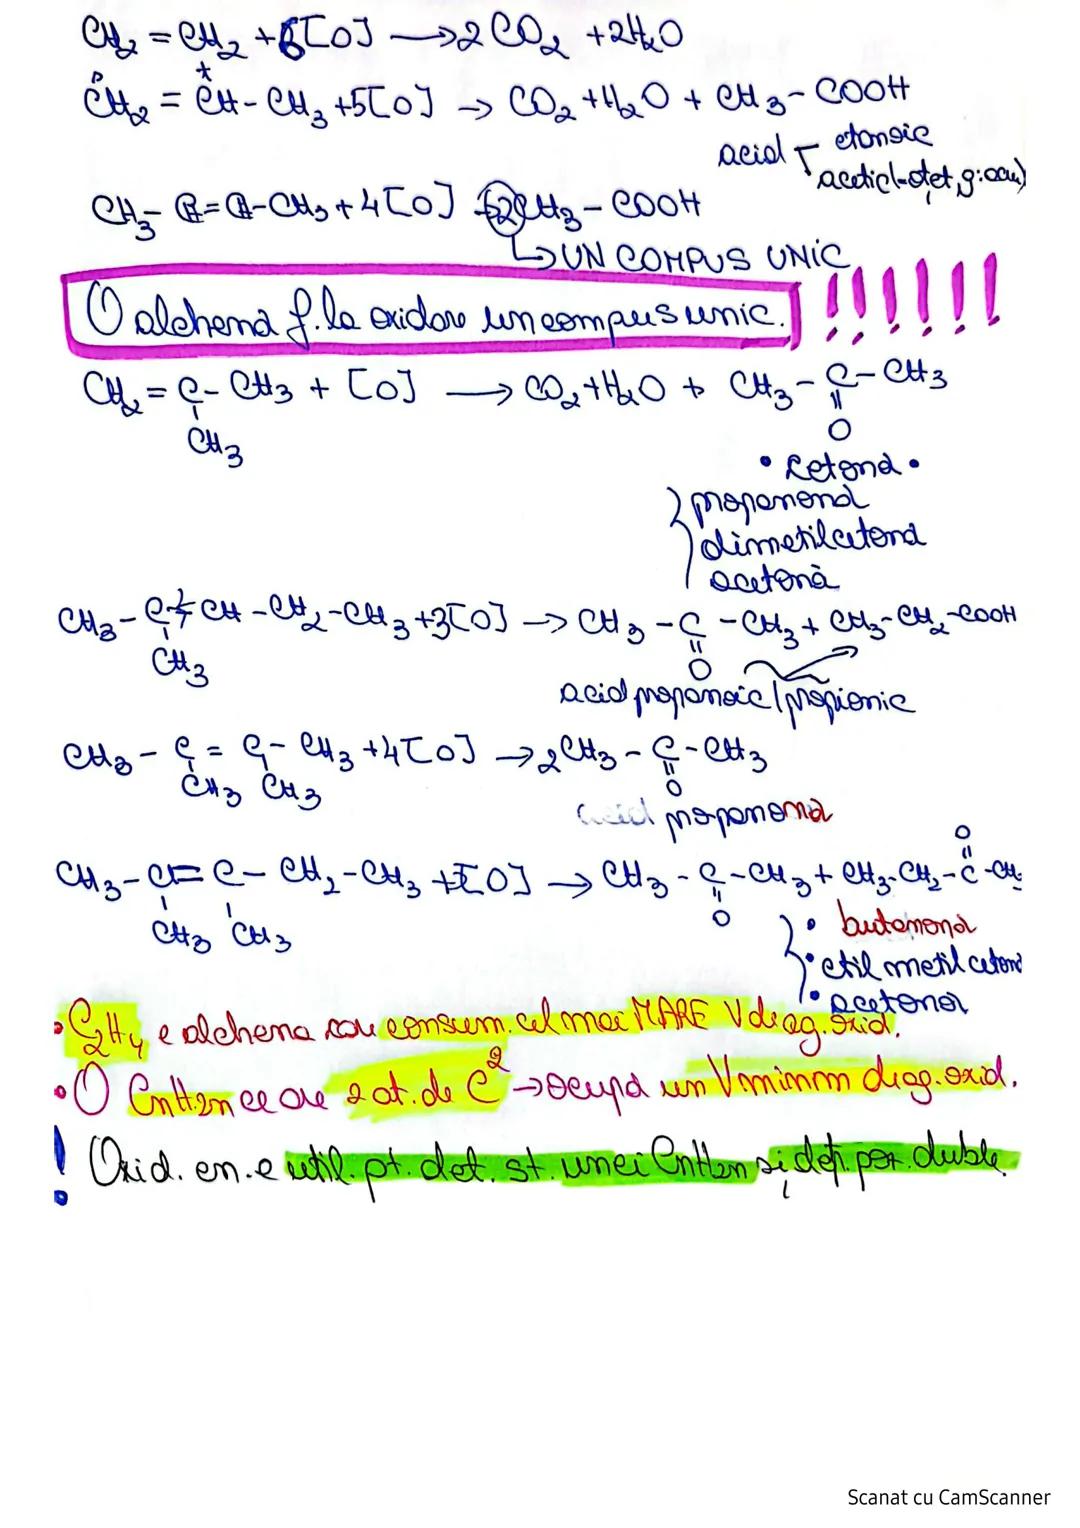 CH₂ = CH₂ + 6[O] → 2CO₂ + 2H₂O
CH₂ = CH - CH₃ + 5[O] → CO₂ + H₂O + CH₃ - COOH
acid etanoic
acetic(-oțet, glacial)
CH₃ - CH = CH - CH₃ + 4[O] → 2CH₃ - COOH
↳ UN COMPUS UNIC
O alchenă f. la oxidare un compus unic. !!!!!!
CH₂ = C - CH₃ + [O] → CO₂ + H₂O + CH₃ - C - CH₃
CH₃ O
• cetonă •
propanonă
dimetilcetonă
acetonă
CH₃ - C = CH - CH₂ - CH₃ + 3[O] → CH₃ - C - CH₃ + CH₃ - CH₂ - COOH
CH₃ O
acid propanoic / propionic
CH₃ - C = C - CH₃ + 4[O] → 2CH₃ - C - CH₃
CH₃ CH₃ O
acid propanonă
O
CH₃ - C = C - CH₂ - CH₃ + [O] → CH₃ - C - CH₃ + CH₃ - CH₂ - C - CH₃
CH₃ CH₃ O
• butanonă
• etil metil cetonă
• acetonă
• C₂H₄ e alchena care consum. cel mai MARE V de ag. oxid.
• O CnH2n ce are 2 at. de C² → ocupă un V minim de ag. oxid.
! Oxid. en. e util. pt. det. st. unei CnH2n și det. poz. duble.
Scanat cu CamScanner